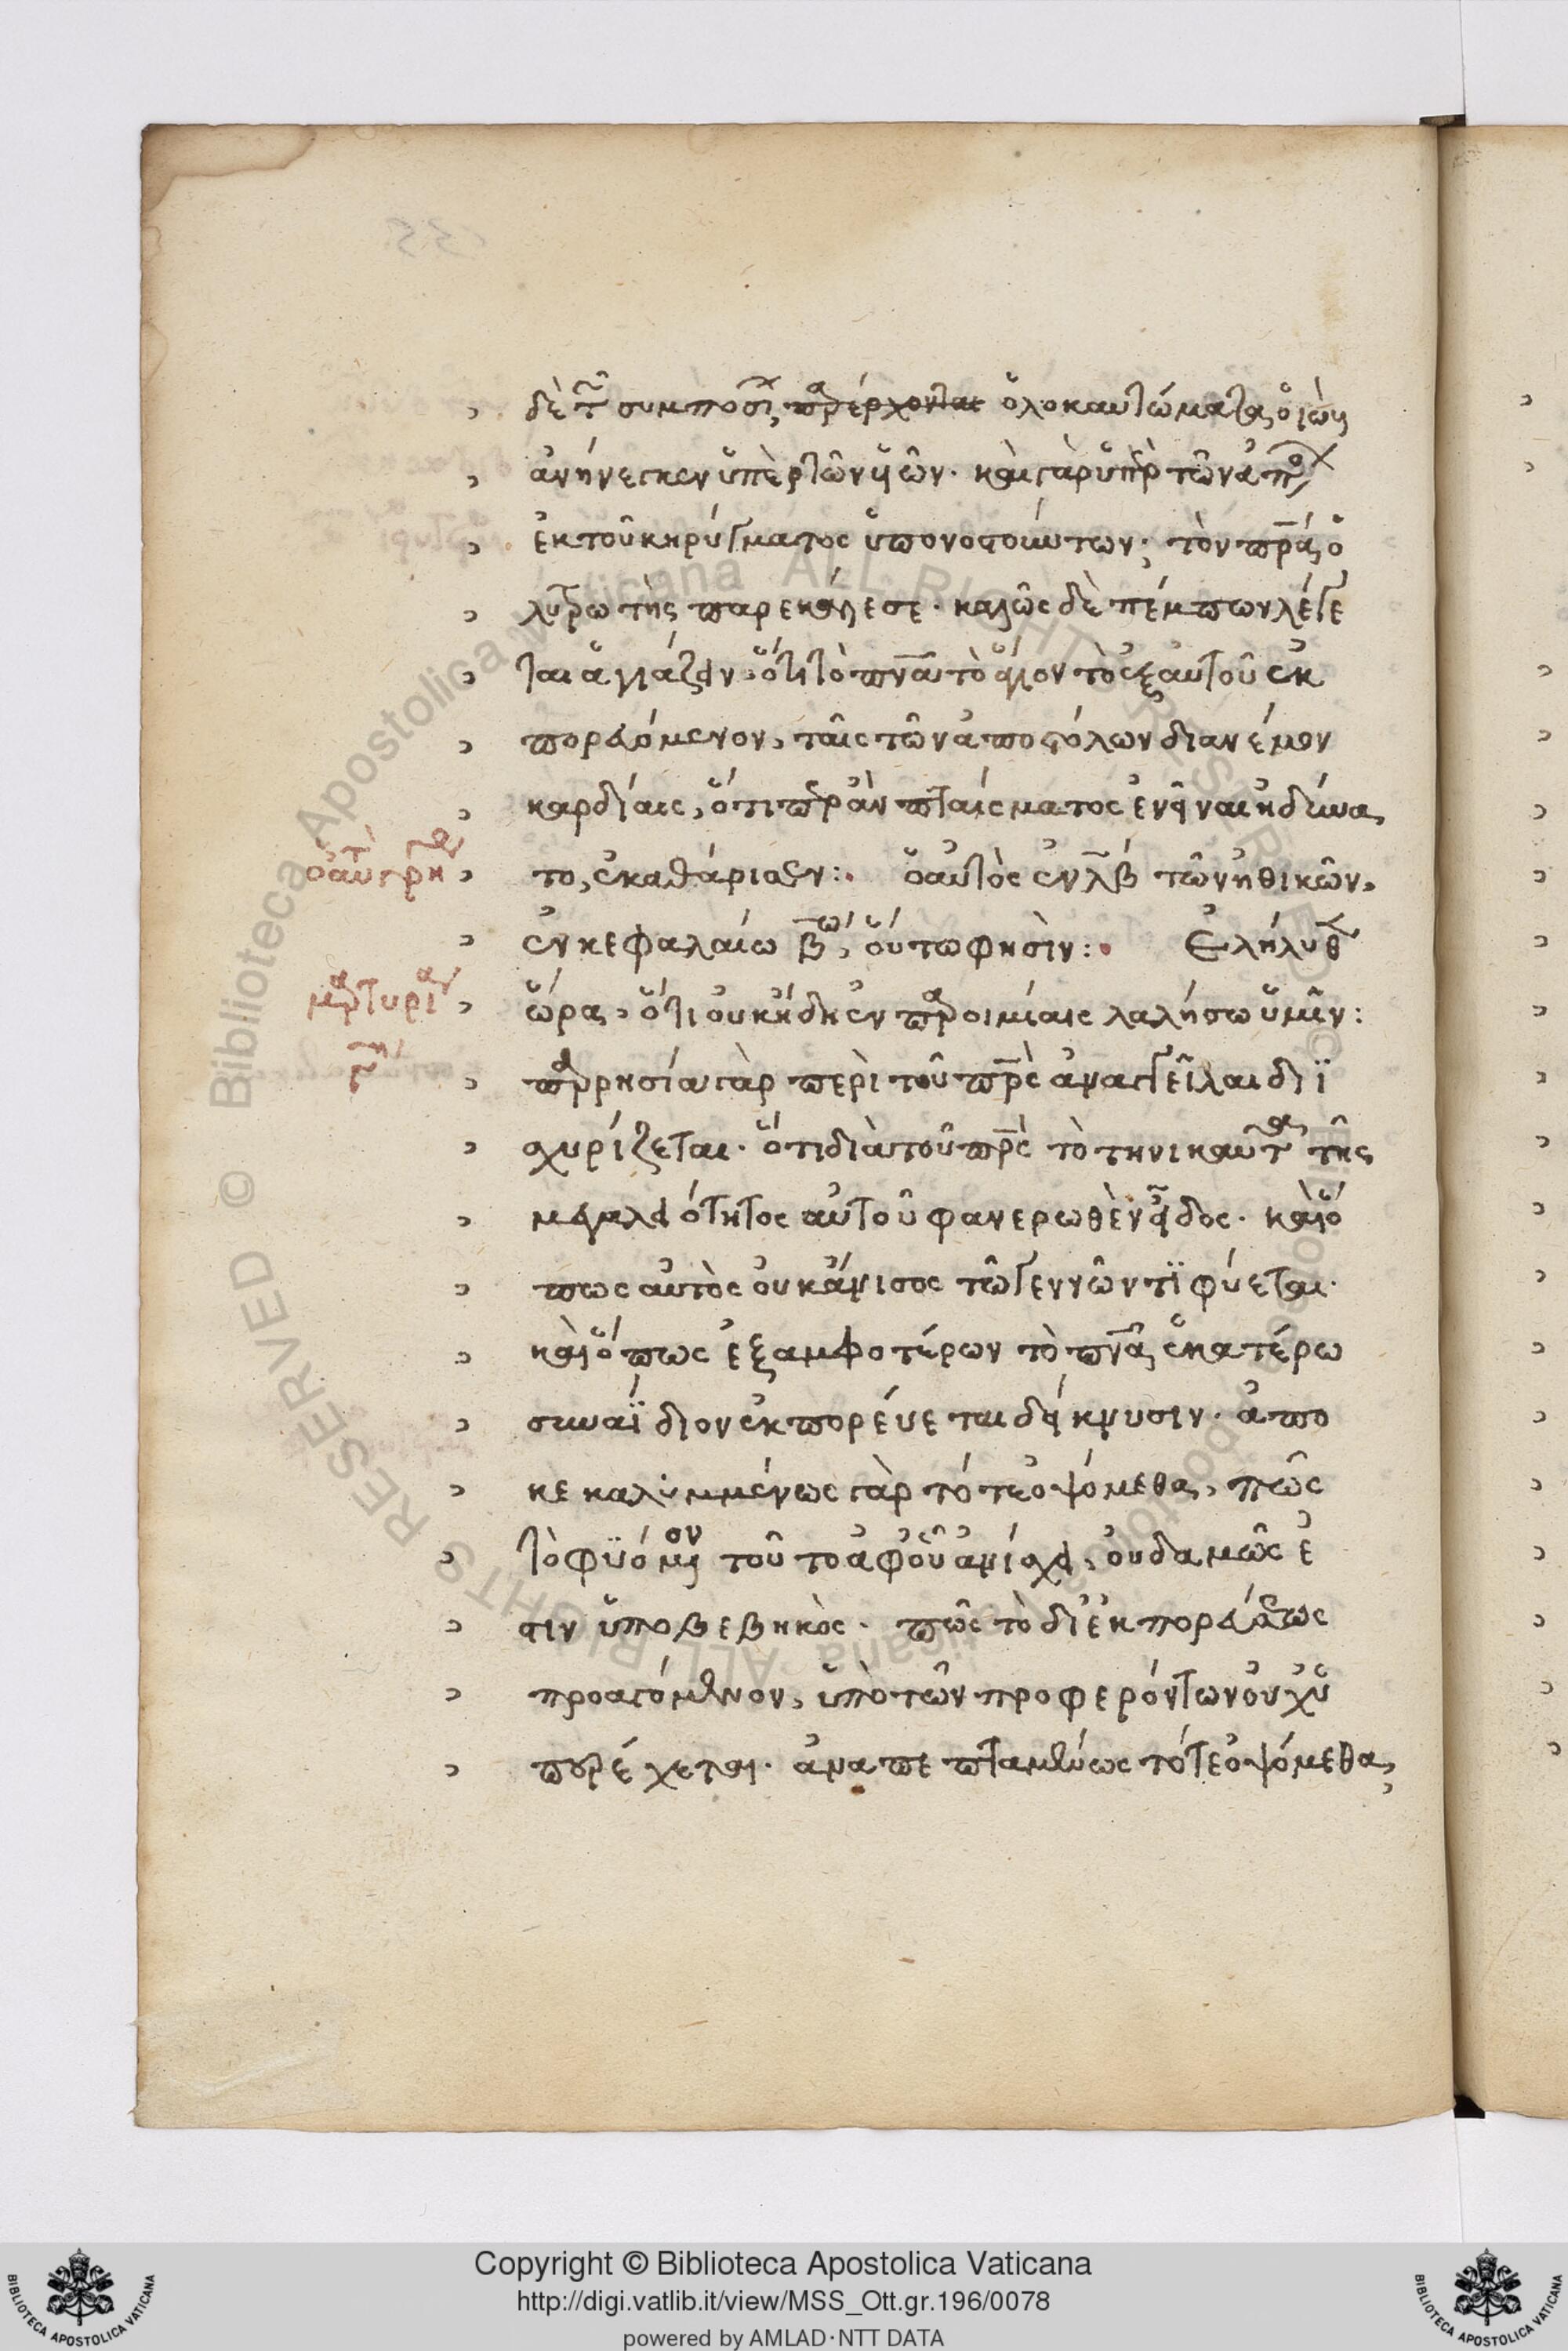 δὲ τοῦ συμποσίου παρέρχονται ὁλοκαυτώματα, ὁ ἰὼβ
ἀνήνεγκεν ὑπὲρ τῶν υἱῶν· καὶ γὰρ ὑπὲρ τῶν ἀπο
ἐκ τοῦ κηρύγματος ὑπονοστούντων· τὸν πρα, ὁ
λυτρωτὴς παρεκάλεσε· καλῶς δὲ πέμπων λέγε
ται ἁγιάζειν· ὅτι τὸ πνα τὸ ἅγιον τὸ ἐξ αὐτοῦ ἐκ
πορευόμενον, ταῖς τῶν ἀποστόλων διανέμον
καρδίαις, ὅτιπερ ἂν πταίσματος ἐνεῖναι ἠδύνα
ὁ αὐτ γρη
το, ἐκαθάρισεν: ὁ αὐτὸς ἐν λβ τῶν ἠθικῶν,
ἐν κεφαλαίω βω, οὕτω φησίν: Ἐλήλυθεν
μαρτυρία
ὥρα, ὅτι οὐκ ἤδη ἐν παροιμίαις λαλήσω ὑμῖν:
γη
παρρησία γὰρ περὶ τοῦ πρς ἀναγγεῖλαι διϊ
σχυρίζεται· ὅτι διὰ τοῦ πρς τὸ τηνικαῦτα τῆς
μεγαλειότητος αὐτοῦ φανερωθὲν εἶδος· καὶ ὅ
πως αὐτὸς οὐκ ἄνισος τῶ γεννῶντϊ φύεται·
καὶ ὅπως ἐξ ἀμφοτέρων τὸ πνα, ἑκατέρω
συναΐδιον ἐκπορέυεται δείκνυσιν· ἀπο
κεκαλυμμένως γὰρ τότε ὀψόμεθα, πῶς
τὸ φϋόμενον τοῦτο ἀφ' οὗ ἀνίσχει, οὐδαμῶς ἐ
στιν ὑποβεβηκὸς· πῶς τὸ δι' ἐκπορεύσεως
προαγόμενον, ὑπὸ τῶν προφερόντων οὐχ ὑ
περέχεται· ἀναπεπταμένως τότε ὀψόμεθα,
Copyright © Biblioteca Apostolica Vaticana
http://digi.vatlib.it/view/MSS_Ott.gr.196/0078
powered by AMLAD·NTT DATA